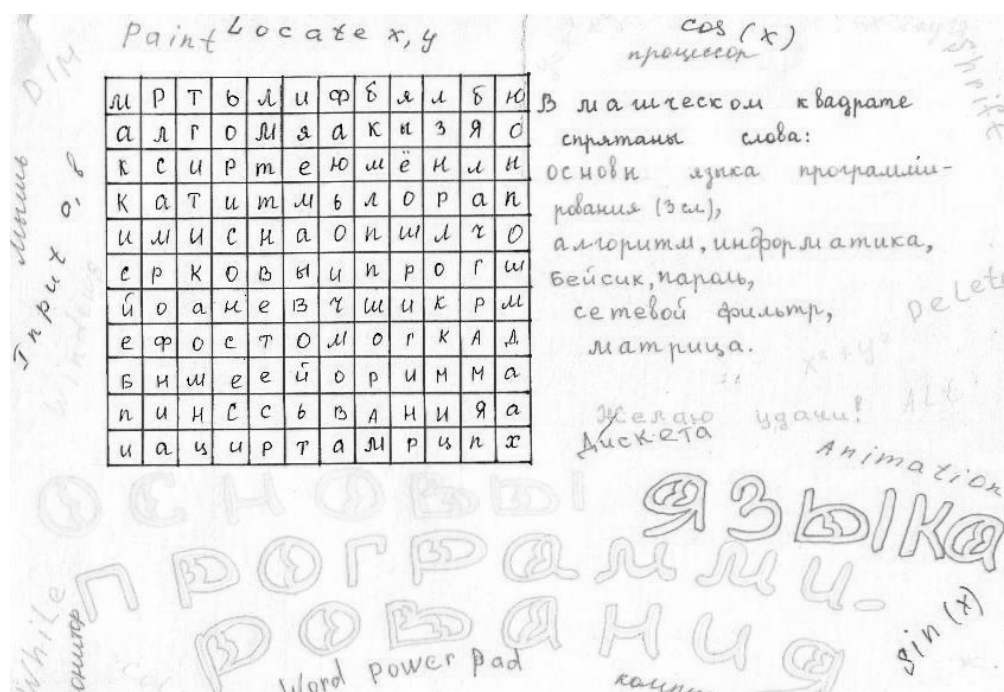 Paint Locate x, y
cos (x)
процессор
Shrift
м р т ь л и ф б я л б ю
а л г о м я а к ы з я о
к с и р т е ю м ё н л н
к а т и т м ь л о р а п
и м и с н а о п ш л ч о
с р к о в ы и п р о г ш
й о а н е в ч ш и к р м
е ф о с т о м о г к а д
б н м е е й о р и м м а
п и н с с ь в а н и я а
и а ц и р т а м р ц п х
В магическом квадрате
спрятаны слова:
основы языка программи-
рования (3 сл),
алгоритм, информатика,
бейсик, пароль,
сетевой фильтр,
матрица.
Желаю удачи!
Дискета
мышь
Windows
Delete
x² + y²
Alt
Animation
основы языка
программи-
рования
While
sin (x)
Word power pad